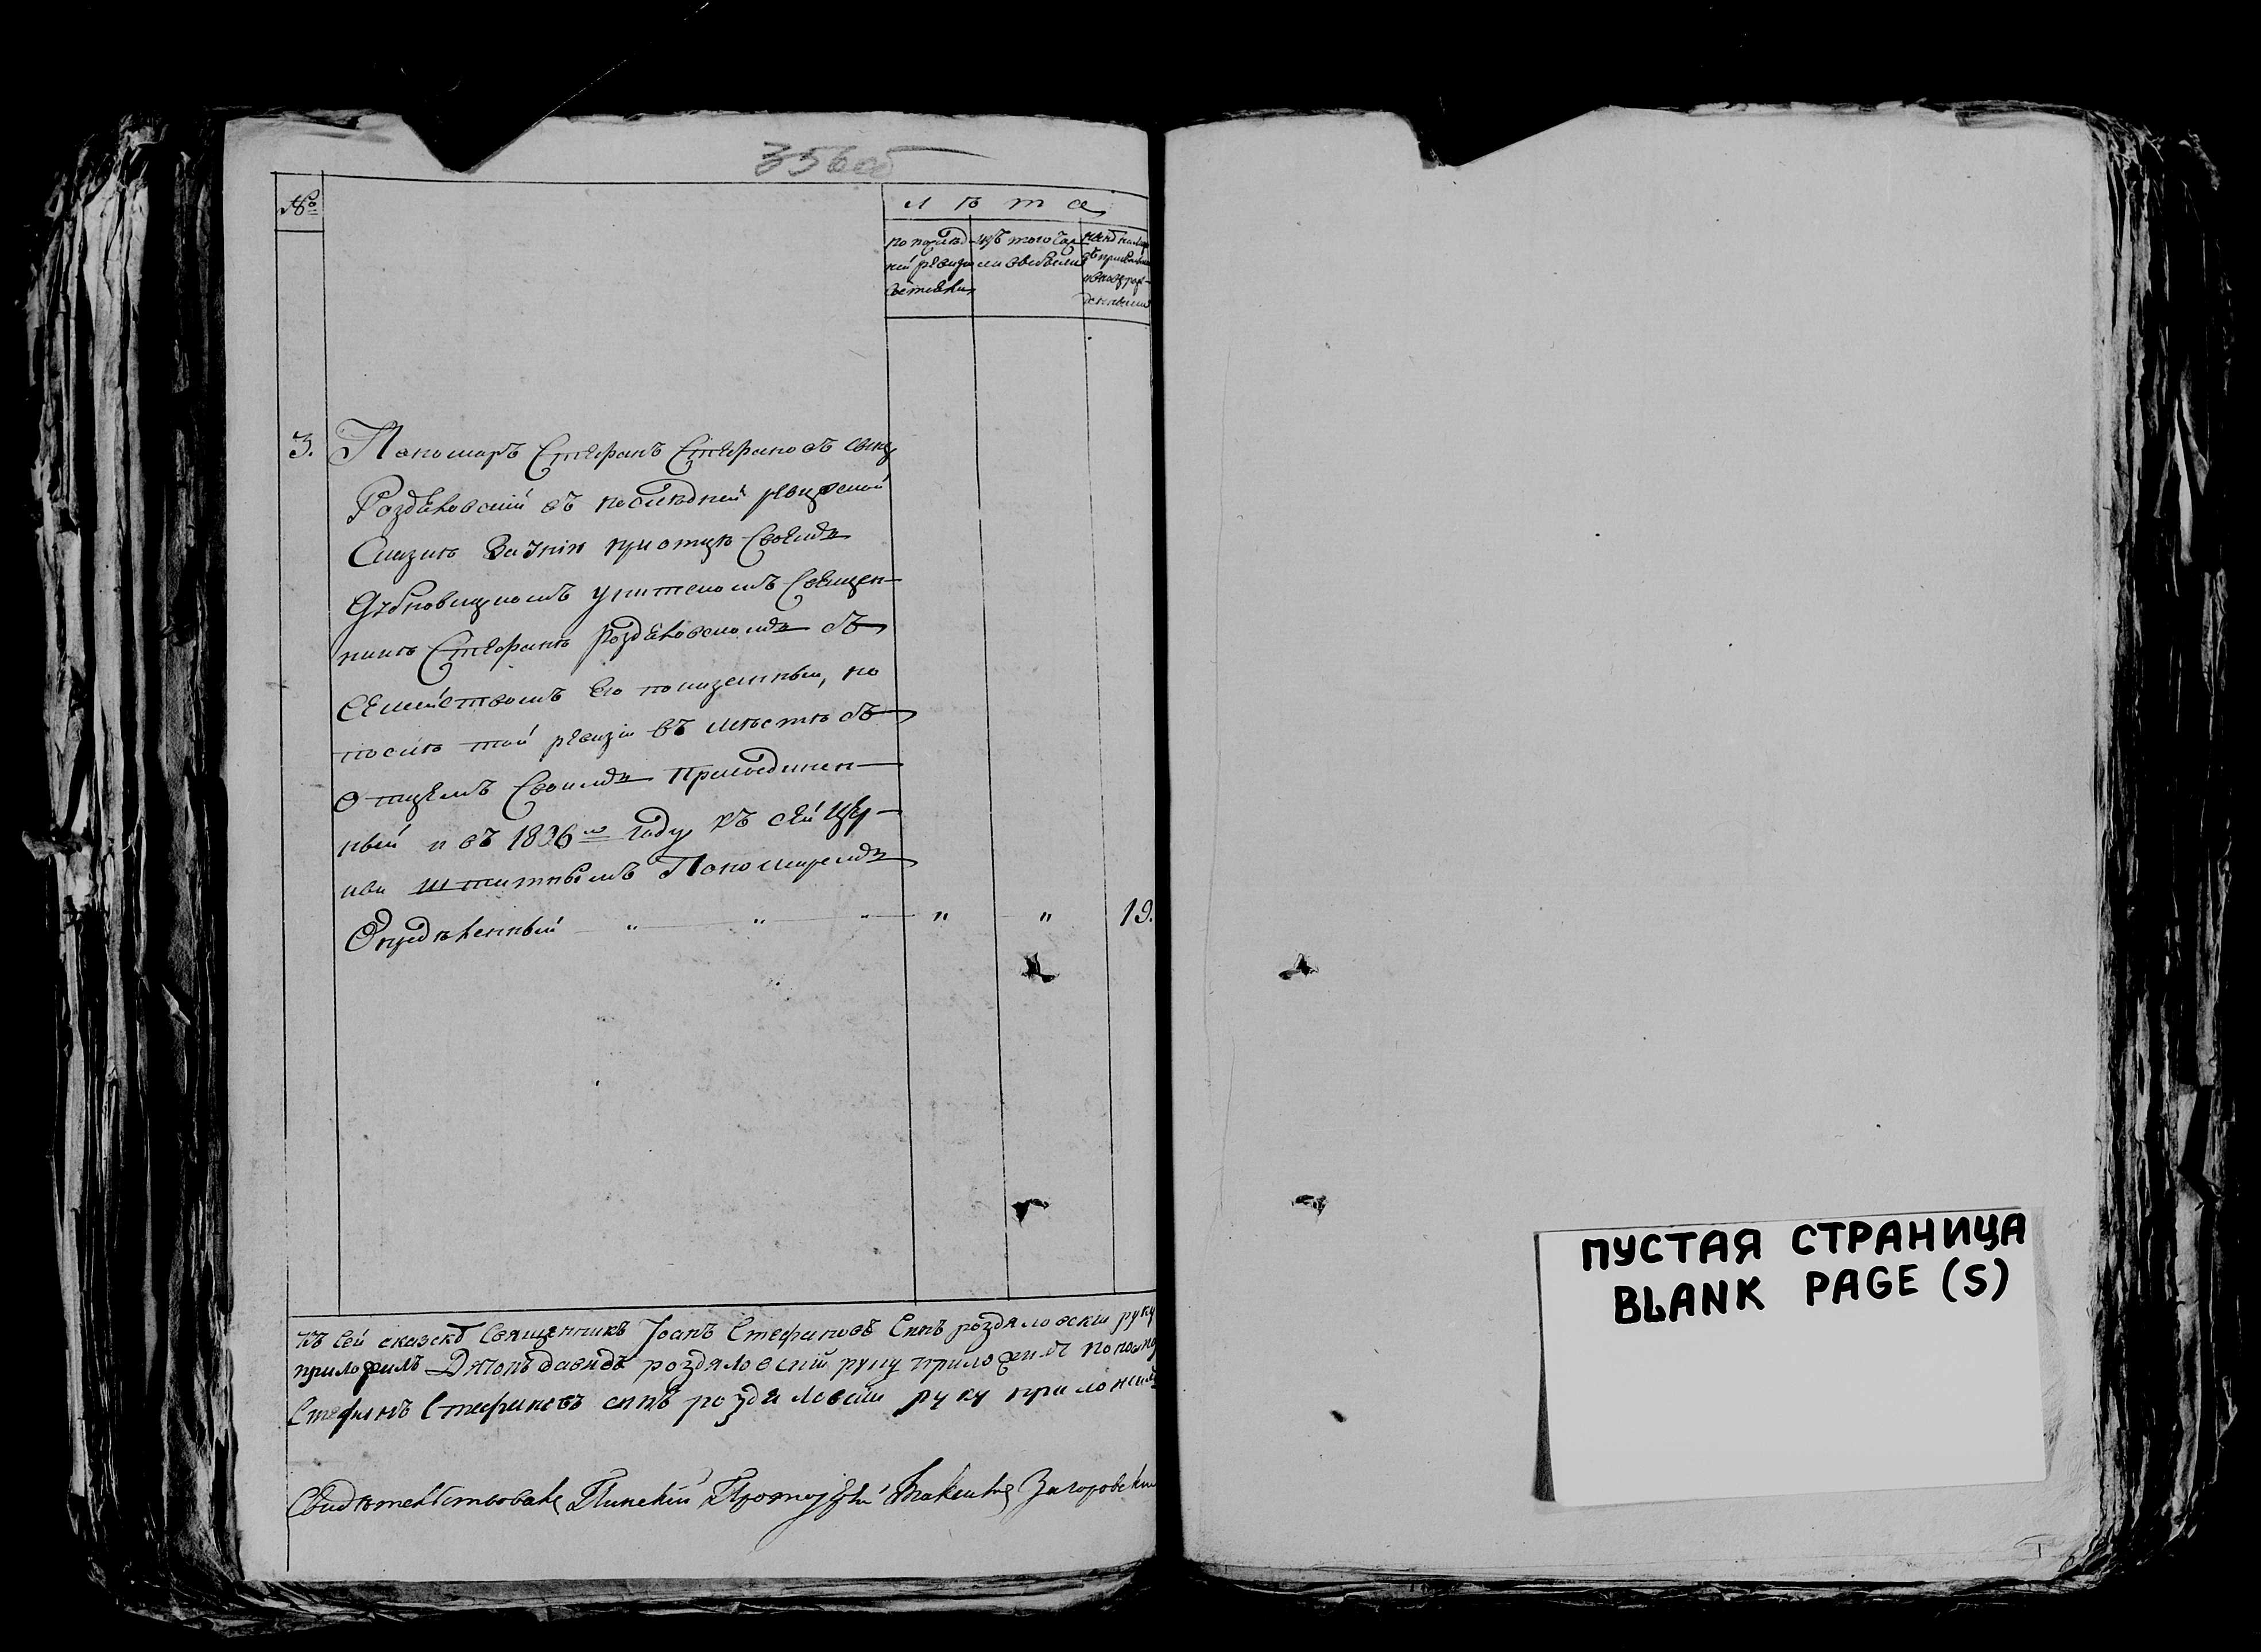 356 об
№
Лѣта
по послѣд-
ней ревизіи
состояли
изъ того чис-
ла выбыли
3. Пономаръ Стефанъ Стефановъ сынъ
Роздяловскій въ последней ревизской
Сказкѣ при отцѣ Своемъ
Священ-
никѣ Стефанѣ Роздяловскомъ съ
Семействомъ Его показанный, но
послѣ той ревизіи въ мѣстѣ съ
Отцемъ Своимъ присоединен-
ный и въ 1806м году къ сей Цер-
кви штатнымъ Пономаремъ
Опредѣленный " " " " " 19.
Къ сей сказскѣ Священникъ Іоанъ Стефановъ Синъ роздяловскій руку
приложилъ Дячокъ давидъ роздяловскій руку приложилъ пономар
Стефанъ Стефановъ синъ роздяловскій руку приложилъ
Свидѣтельствовалъ Пинскій Загоровскій
ПУСТАЯ СТРАНИЦА
BLANK PAGE (S)